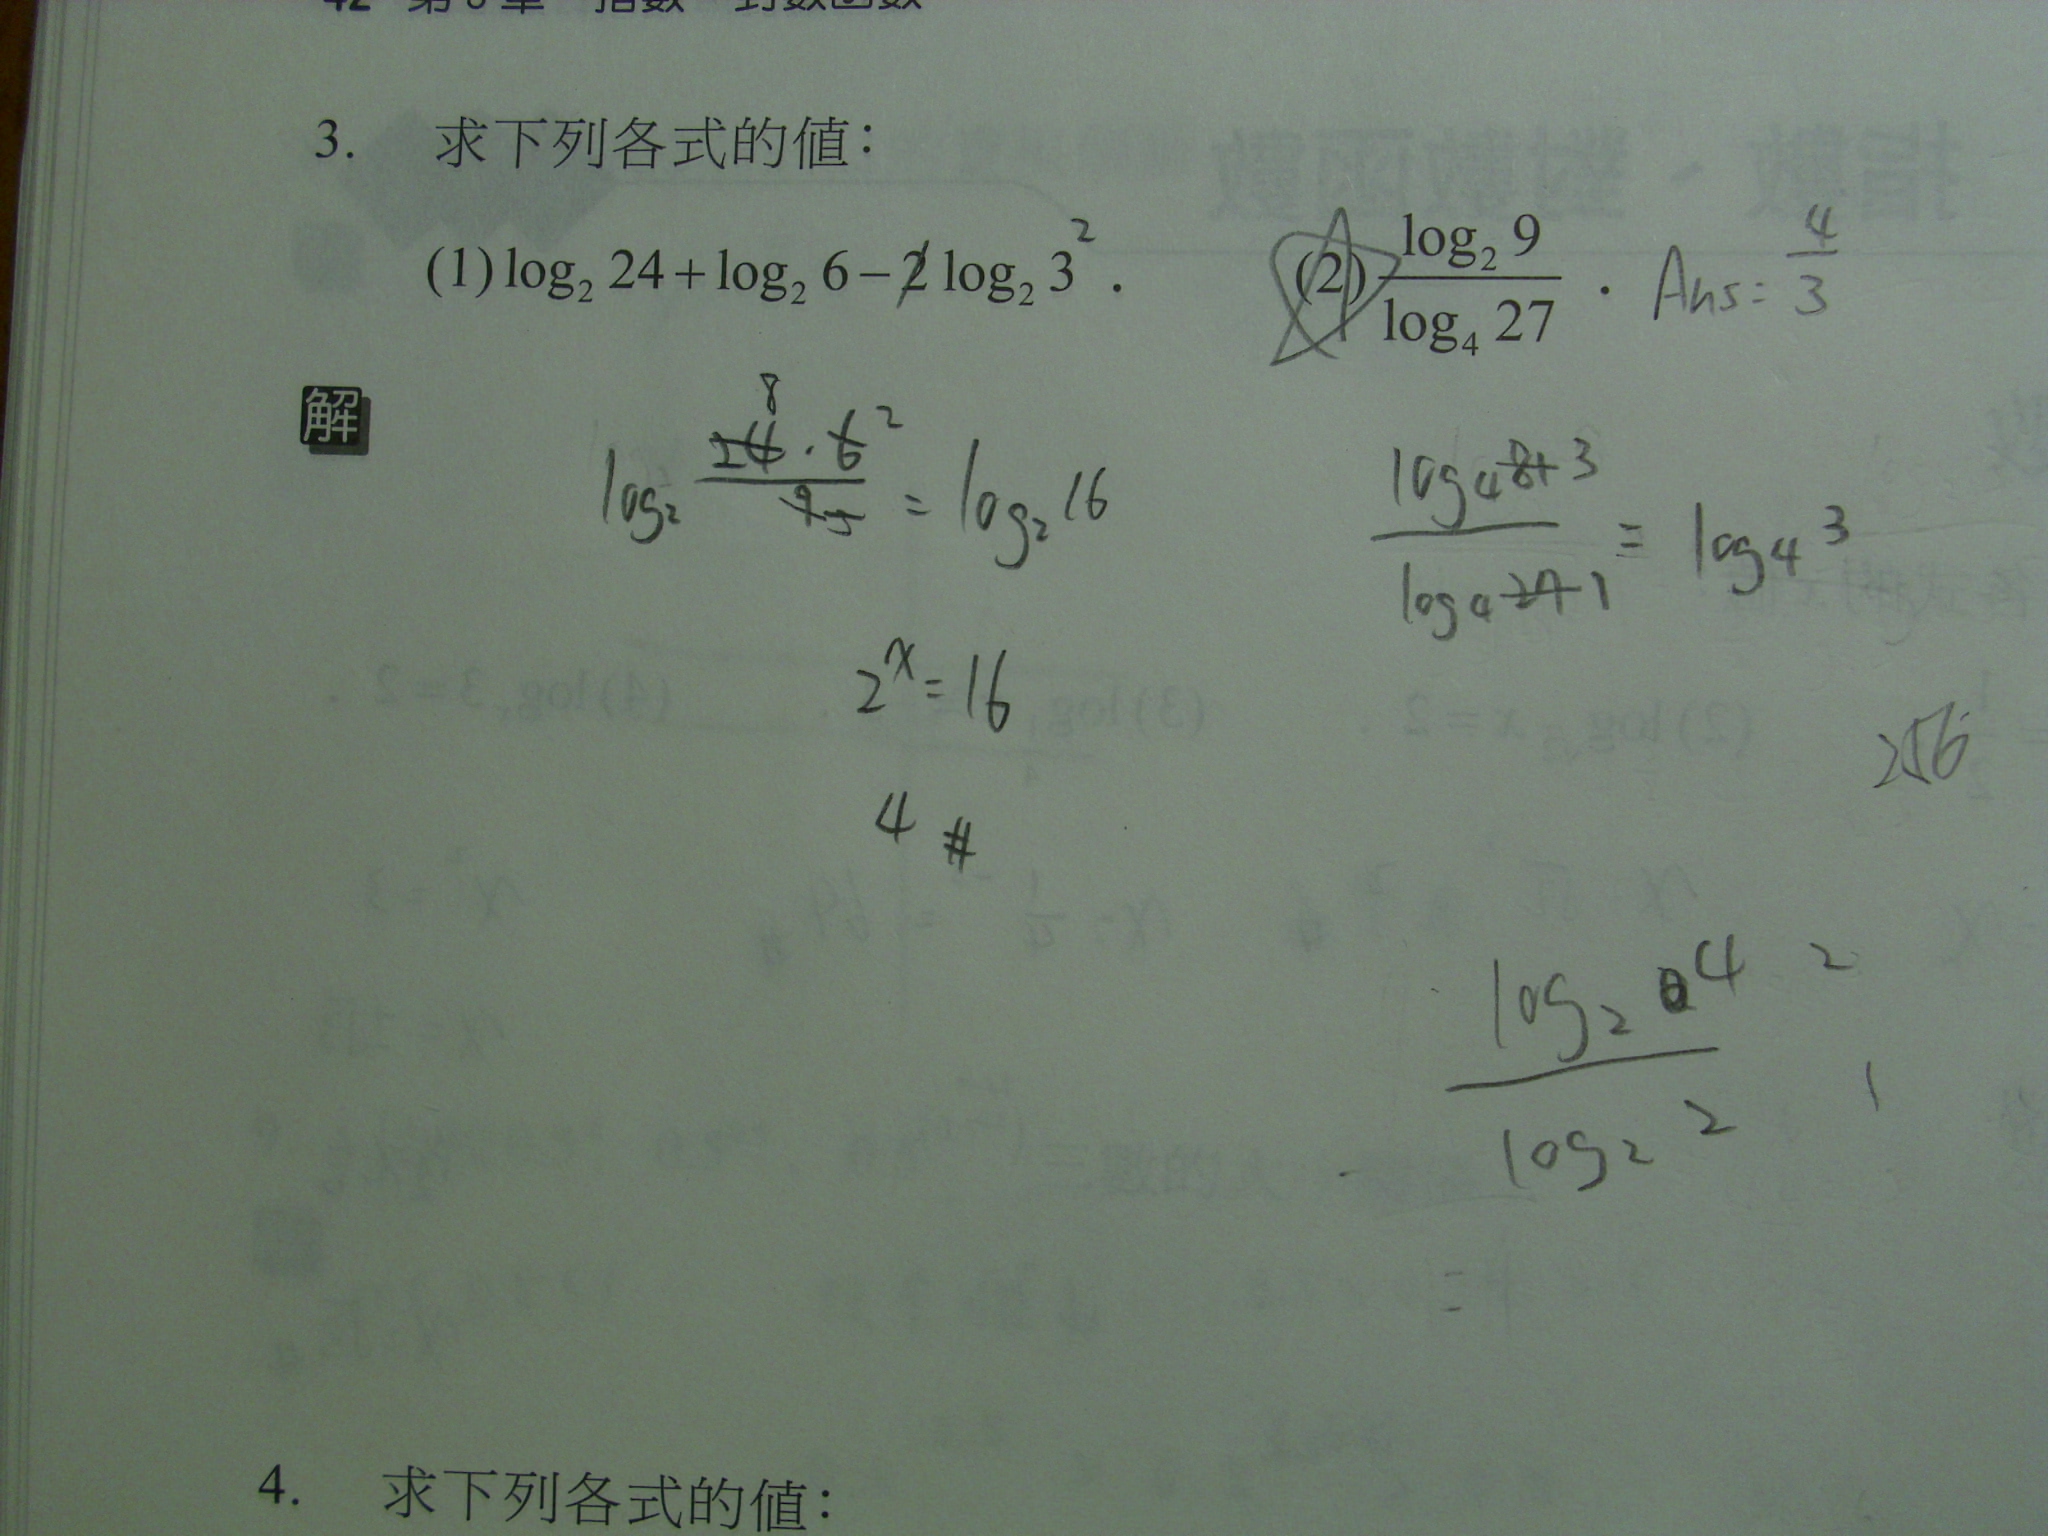 42 第3章 指數、對數函數
3. 求下列各式的值：
(1) log₂ 24 + log₂ 6 − 2 log₂ 3² .
(2) log₂ 9 / log₄ 27 . Ans = 4/3
解
8
log₂ 24 · 6 2 / 9 = log₂ 16
2ˣ = 16
4 #
log₄ 81 3 / log₄ 27 1 = log₄ 3
256
log₂ 4 2
log₂ 2 1
=
4. 求下列各式的值：